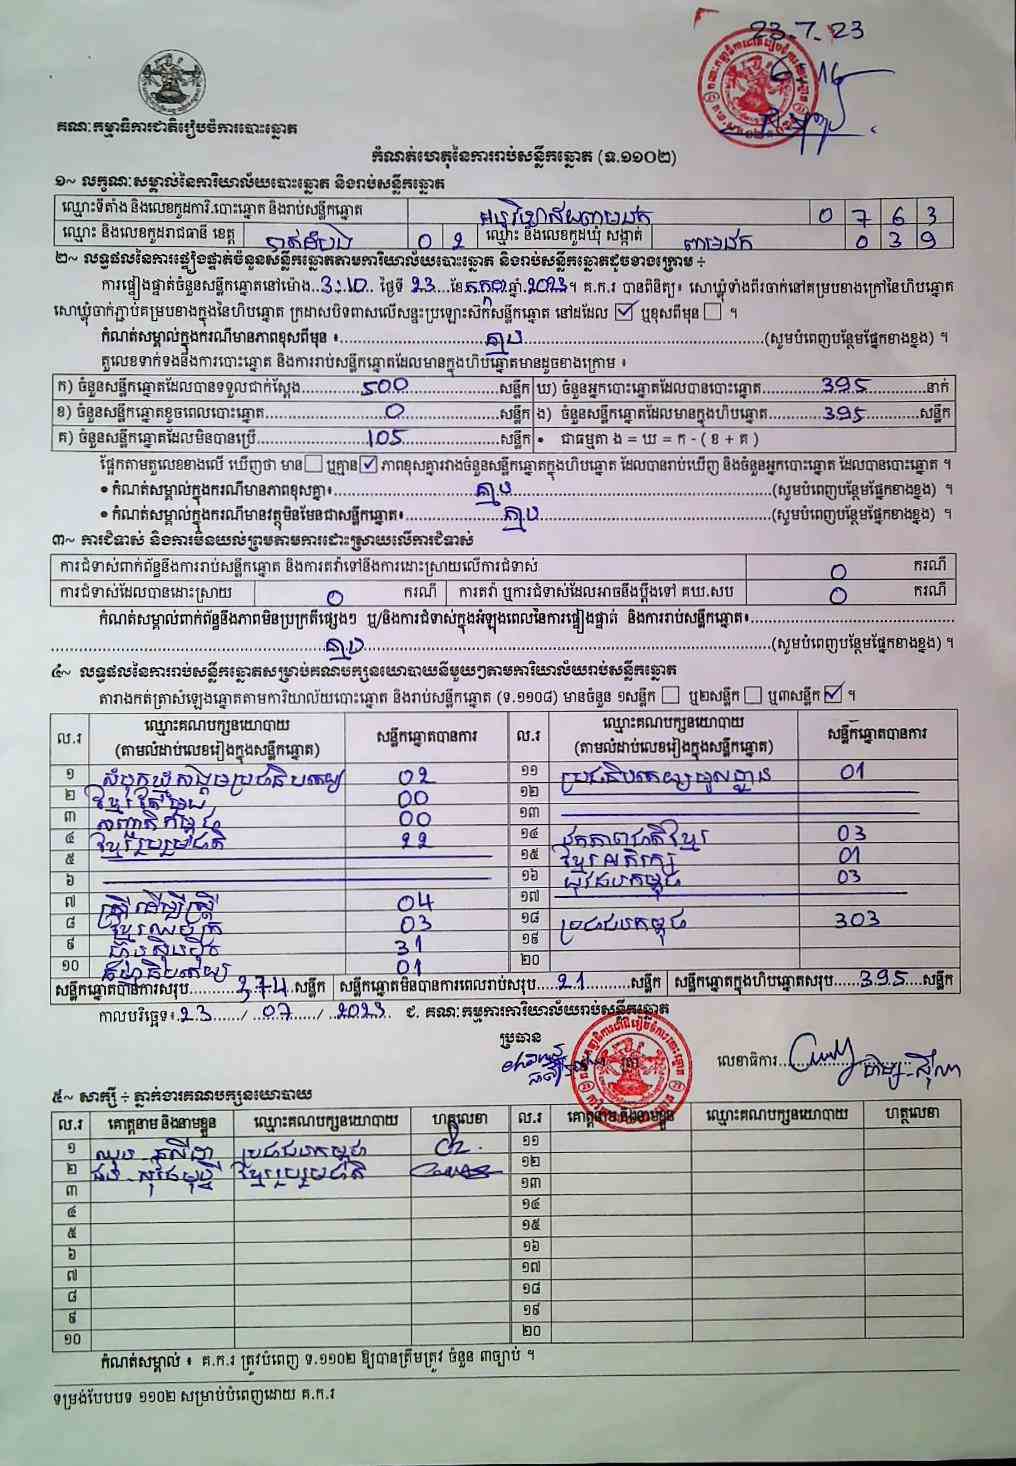 23.7.23
គណៈកម្មាធិការជាតិរៀបចំការបោះឆ្នោត
កំណត់ហេតុនៃការរាប់សន្លឹកឆ្នោត (ទ.១១០២)
១~ លក្ខណៈសម្គាល់នៃការិយាល័យបោះឆ្នោត និងរាប់សន្លឹកឆ្នោត
ឈ្មោះទីតាំង និងលេខកូដការិ.បោះឆ្នោត និងរាប់សន្លឹកឆ្នោត 0 7 6 3
ឈ្មោះ និងលេខកូដរាជធានី ខេត្ត បាត់ដំបង 0 2 ឈ្មោះ និងលេខកូដឃុំ សង្កាត់ 0 3 9
២~ លទ្ធផលនៃការផ្ទៀងផ្ទាត់ចំនួនសន្លឹកឆ្នោតតាមការិយាល័យបោះឆ្នោត និងរាប់សន្លឹកឆ្នោតដូចខាងក្រោម ÷
ការផ្ទៀងផ្ទាត់ចំនួនសន្លឹកឆ្នោតនៅម៉ោង..3:10.. ថ្ងៃទី 23...ខែកក្កដាឆ្នាំ.2023។ គ.ក.រ បានពិនិត្យ៖ សោឃ្លុំទាំងពីរចាក់នៅគម្របខាងក្រៅនៃហិបឆ្នោត
សោឃ្លុំចាក់ភ្ជាប់គម្របខាងក្នុងនៃហិបឆ្នោត ក្រដាសបិទពាសលើសន្ទះប្រឡោះសៀតសន្លឹកឆ្នោត នៅដដែល ☑ ឬខុសពីមុន ☐ ។
កំណត់សម្គាល់ក្នុងករណីមានភាពខុសពីមុន ៖ គ្មាន (សូមបំពេញបន្ថែមផ្នែកខាងខ្នង) ។
តួលេខទាក់ទងនឹងការបោះឆ្នោត និងការរាប់សន្លឹកឆ្នោតដែលមានក្នុងហិបឆ្នោតមានដូចខាងក្រោម ៖
ក) ចំនួនសន្លឹកឆ្នោតដែលបានទទួលជាក់ស្តែង 500 សន្លឹក ឃ) ចំនួនអ្នកបោះឆ្នោតដែលបានបោះឆ្នោត 395 នាក់
ខ) ចំនួនសន្លឹកឆ្នោតខូចពេលបោះឆ្នោត 0 សន្លឹក ង) ចំនួនសន្លឹកឆ្នោតដែលមានក្នុងហិបឆ្នោត 395 សន្លឹក
គ) ចំនួនសន្លឹកឆ្នោតដែលមិនបានប្រើ 105 សន្លឹក • ជាធម្មតា ង = ឃ = ក - ( ខ + គ )
ផ្អែកតាមតួលេខខាងលើ ឃើញថា មាន ☐ ឬគ្មាន ☑ ភាពខុសគ្នារវាងចំនួនសន្លឹកឆ្នោតក្នុងហិបឆ្នោត ដែលបានរាប់ឃើញ និងចំនួនអ្នកបោះឆ្នោត ដែលបានបោះឆ្នោត ។
• កំណត់សម្គាល់ក្នុងករណីមានភាពខុសគ្នា៖ គ្មាន (សូមបំពេញបន្ថែមផ្នែកខាងខ្នង) ។
• កំណត់សម្គាល់ក្នុងករណីមានវត្ថុមិនមែនជាសន្លឹកឆ្នោត៖ គ្មាន (សូមបំពេញបន្ថែមផ្នែកខាងខ្នង) ។
៣~ ការជំទាស់ និងការមិនយល់ព្រមតាមការដោះស្រាយលើការជំទាស់
ការជំទាស់ពាក់ព័ន្ធនឹងការរាប់សន្លឹកឆ្នោត និងការតវ៉ាទៅនឹងការដោះស្រាយលើការជំទាស់ 0 ករណី
ការជំទាស់ដែលបានដោះស្រាយ 0 ករណី ការតវ៉ា ឬការជំទាស់ដែលអាចនឹងប្តឹងទៅ គឃ.សប 0 ករណី
កំណត់សម្គាល់ពាក់ព័ន្ធនឹងភាពមិនប្រក្រតីផ្សេងៗ ឬ/និងការជំទាស់ក្នុងអំឡុងពេលនៃការផ្ទៀងផ្ទាត់ និងការរាប់សន្លឹកឆ្នោត៖
គ្មាន (សូមបំពេញបន្ថែមផ្នែកខាងខ្នង) ។
៤~ លទ្ធផលនៃការរាប់សន្លឹកឆ្នោតសម្រាប់គណបក្សនយោបាយនីមួយៗតាមការិយាល័យរាប់សន្លឹកឆ្នោត
តារាងកត់ត្រាសំឡេងឆ្នោតតាមការិយាល័យបោះឆ្នោត និងរាប់សន្លឹកឆ្នោត (ទ.១១០៨) មានចំនួន ១សន្លឹក ☐ ឬ២សន្លឹក ☐ ឬ៣សន្លឹក ☑ ។
ល.រ ឈ្មោះគណបក្សនយោបាយ (តាមលំដាប់លេខរៀងក្នុងសន្លឹកឆ្នោត) សន្លឹកឆ្នោតបានការ ល.រ ឈ្មោះគណបក្សនយោបាយ (តាមលំដាប់លេខរៀងក្នុងសន្លឹកឆ្នោត) សន្លឹកឆ្នោតបានការ
១ សំបុកឃ្មុំសង្គមប្រជាធិបតេយ្យ 02 ១១ ប្រជាធិបតេយ្យមូលដ្ឋាន 01
២ ខ្មែរតែមួយ 00 ១២
៣ សញ្ជាតិកម្ពុជា 00 ១៣
៤ ខ្មែររួបរួមជាតិ 22 ១៤ ឯកភាពជាតិខ្មែរ 03
៥ ១៥ ខ្មែរអភិរក្ស 01
៦ ១៦ យុវជនកម្ពុជា 03
៧ ស្រ្តីដើម្បីស្រ្តី 04 ១៧
៨ 03 ១៨ ប្រជាជនកម្ពុជា 303
៩ ហ្វ៊ុនស៊ិនប៉ិច 31 ១៩
១០ ធម្មាធិបតេយ្យ 01 ២០
សន្លឹកឆ្នោតបានការសរុប 374 សន្លឹក សន្លឹកឆ្នោតមិនបានការពេលរាប់សរុប 21 សន្លឹក សន្លឹកឆ្នោតក្នុងហិបឆ្នោតសរុប 395 សន្លឹក
កាលបរិច្ឆេទ៖ 23 / 07 / 2023 ជ. គណៈកម្មការការិយាល័យរាប់សន្លឹកឆ្នោត
ប្រធាន
លេខាធិការ
៥~ សាក្សី ÷ ភ្នាក់ងារគណបក្សនយោបាយ
ល.រ គោត្តនាម និងនាមខ្លួន ឈ្មោះគណបក្សនយោបាយ ហត្ថលេខា ល.រ គោត្តនាម និងនាមខ្លួន ឈ្មោះគណបក្សនយោបាយ ហត្ថលេខា
១ ប្រជាជនកម្ពុជា ១១
២ ខ្មែររួបរួមជាតិ ១២
៣ ១៣
៤ ១៤
៥ ១៥
៦ ១៦
៧ ១៧
៨ ១៨
៩ ១៩
១០ ២០
កំណត់សម្គាល់ ៖ គ.ក.រ ត្រូវបំពេញ ទ.១១០២ ឱ្យបានត្រឹមត្រូវ ចំនួន ៣ច្បាប់ ។
ទម្រង់បែបបទ ១១០២ សម្រាប់បំពេញដោយ គ.ក.រ